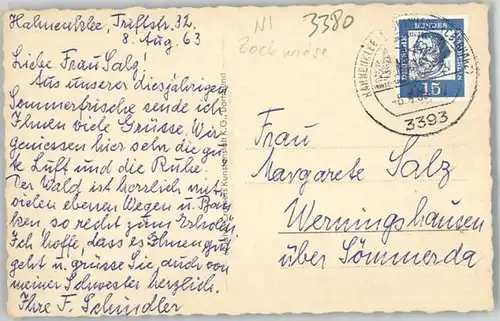 Hahnenklee, Triftstr. 32.
8. Aug. 63
Liebe Frau Salz!
Aus unserer diesjährigen
Sommerfrische sende ich
Ihnen viele Grüsse. Wir
geniessen hier sehr die gu-
te Luft und die Ruhe.
Der Wald ist herrlich mit
vielen ebenen Wegen u. Bän-
ken so recht zum Erholen
Ich hoffe, dass es Ihnen gut
geht u. grüsse Sie, auch von
meiner Schwester herzlich.
Ihre F. Schindler
N1
3380
Bockswiese
DEUTSCHE BUNDESPOST
15
HAHNENKLEE
3393
Kunstanstalt K.G., Dortmund
Frau
Margarete Salz
Werningshausen
über Sömmerda